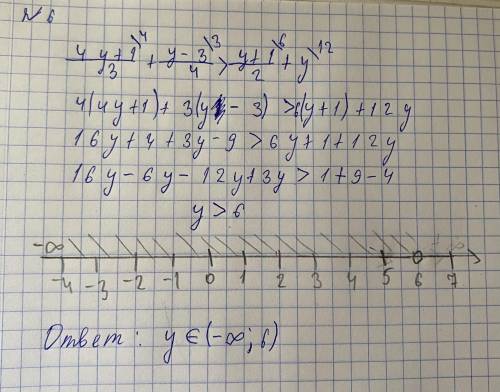 №6
(4y+1)/3 \4 + (y-3)/4 \3 > (y+1)/2 \6 + y \12
4(4y+1)+ 3(y - 3) >6(y+1)+12y
16y+4+3y-9>6y+1+12y
16y-6y-12y+3y>1+9-4
y>6
-∞
-4 -3 -2 -1 0 1 2 3 4 5 6 7
Ответ: y∈(-∞;6)